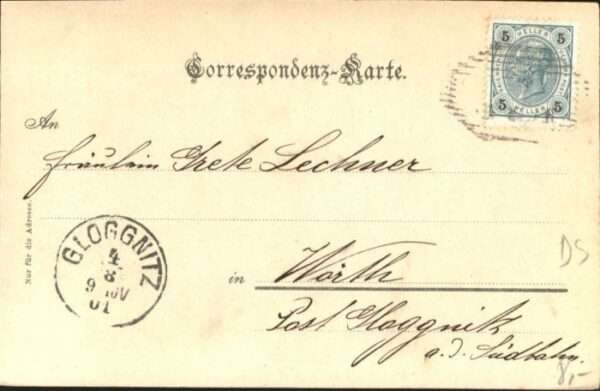 5 HELLER 5
5 HELLER 5
Correspondenz-Karte.
An
Fräulein Grete Lechner
Nur für die Adresse.
GLOGGNITZ
4
8
9
01
in Wörth
Post Gloggnitz
a. d. Südbahn.
DS
8,-